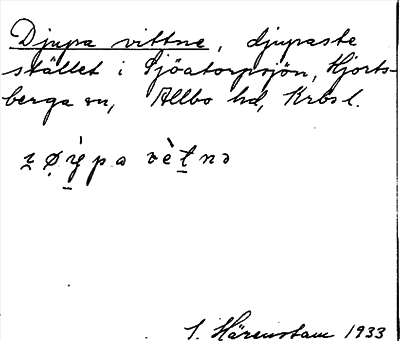 Djupa vittne, djupaste
stället i Sjöatorpsjön, Hjorts-
berga sn, Allbo hd, Krbs l.
vètnə
S. Härenstam 1933